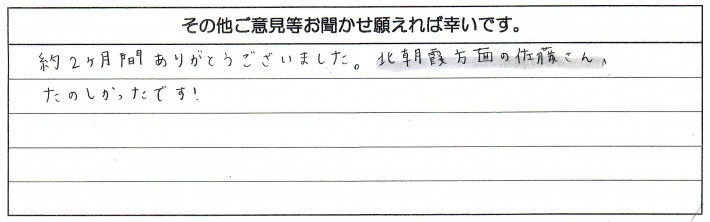 その他ご意見等お聞かせ願えれば幸いです。
約2ヶ月間ありがとうございました。北朝霞方面の佐藤さん、
たのしかったです!